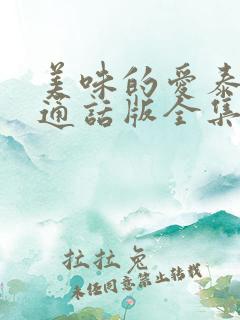 美味的愛泰
通話版全集
拉拉兔
未任同意禁止转载